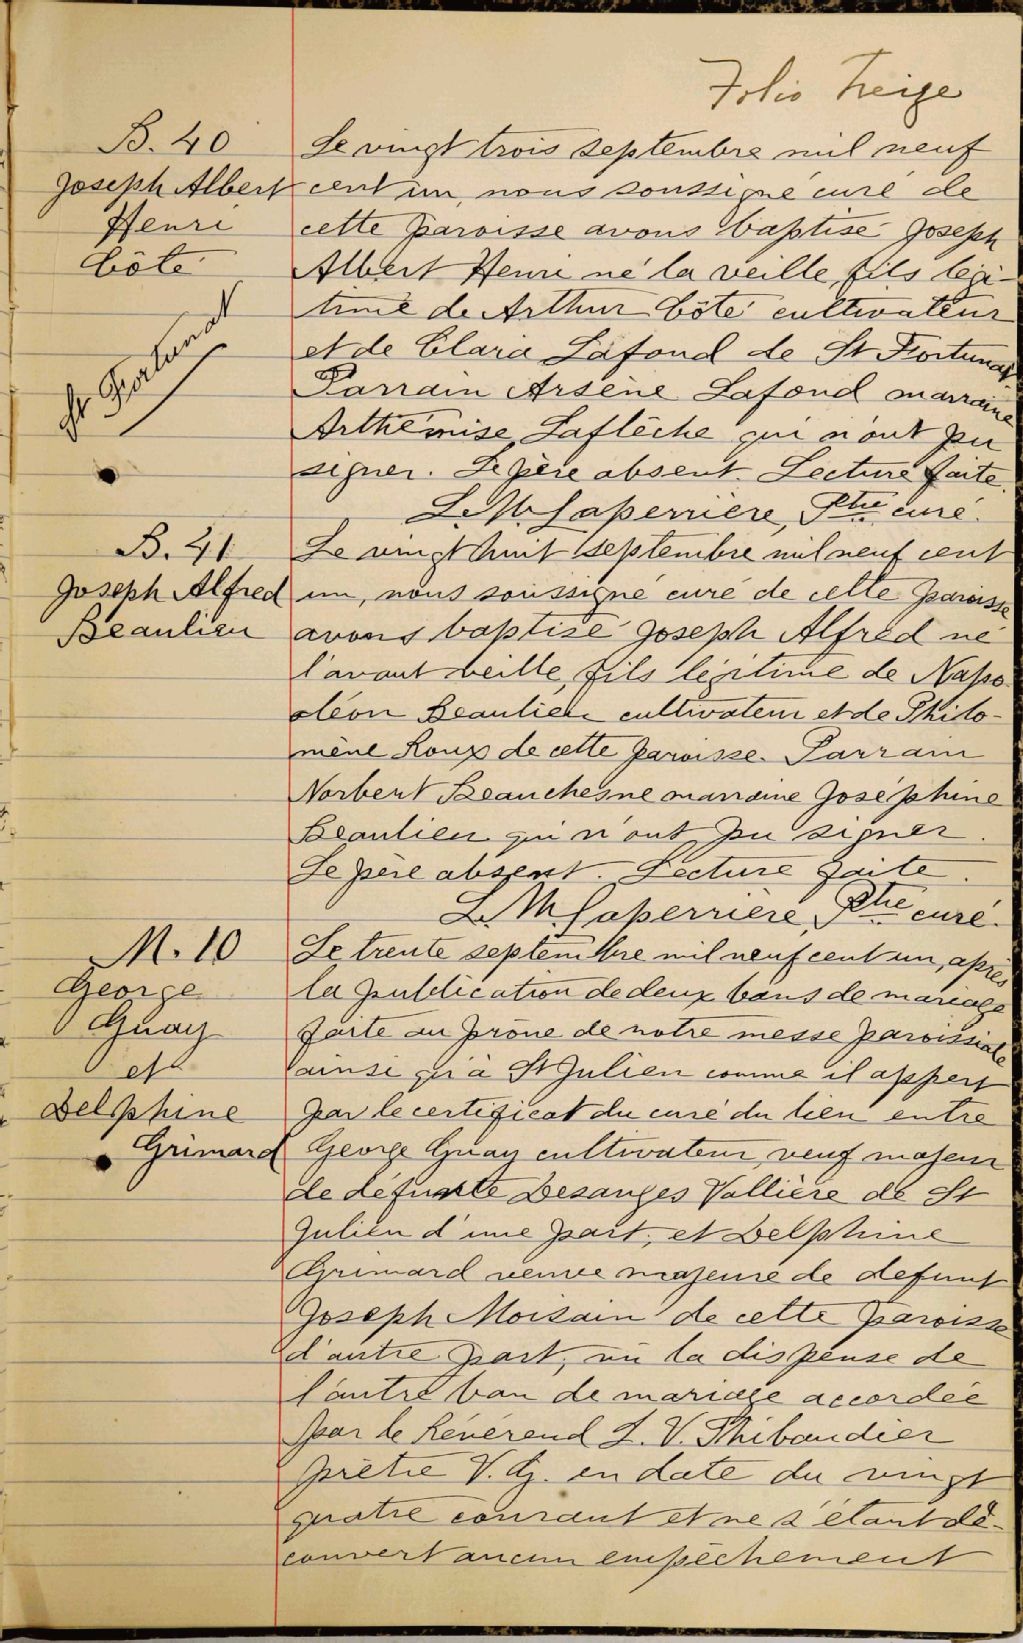 Folio Treize
B. 40
Joseph Albert
Henri
Côté
St Fortunat
Le vingt trois septembre mil neuf
cent un, nous soussigné curé de
cette paroisse avons baptisé Joseph
Albert Henri né la veille, fils légi-
time de Arthur Côté cultivateur
et de Clara Lafond de St Fortunat
Parrain Arsène Lafond marraine
Arthémise Laflèche qui n'ont pu
signer. Le père absent. Lecture faite.
L. M. Laperrière, Ptre curé.
B. 41
Joseph Alfred
Beaulieu
Le vingt huit septembre mil neuf cent
un, nous soussigné curé de cette paroisse
avons baptisé Joseph Alfred né
l'avant veille, fils légitime de Napo-
léon Beaulieu cultivateur et de Philo-
mène Roux de cette paroisse. Parrain
Norbert Beauchesne marraine Joséphine
Beaulieu qui n'ont pu signer.
Le père absent. Lecture faite.
L. M. Laperrière, Ptre curé.
M. 10
George
Guay
et
Delphine
Grimard
Le trente septembre mil neuf cent un, après
la publication de deux bans de mariage
faite au prône de notre messe paroissiale
ainsi qu'à St Julien comme il appert
par le certificat du curé du lieu entre
George Guay cultivateur, veuf majeur
de défunte Desanges Vallière de St
Julien d'une part, et Delphine
Grimard veuve majeure de defunt
Joseph Moisain de cette paroisse
d'autre part, vu la dispense de
l'autre ban de mariage accordée
par le Révérend L. V. Thibaudier
prêtre V. G. en date du vingt
quatre courant et ne s'étant dé-
couvert aucun empêchement